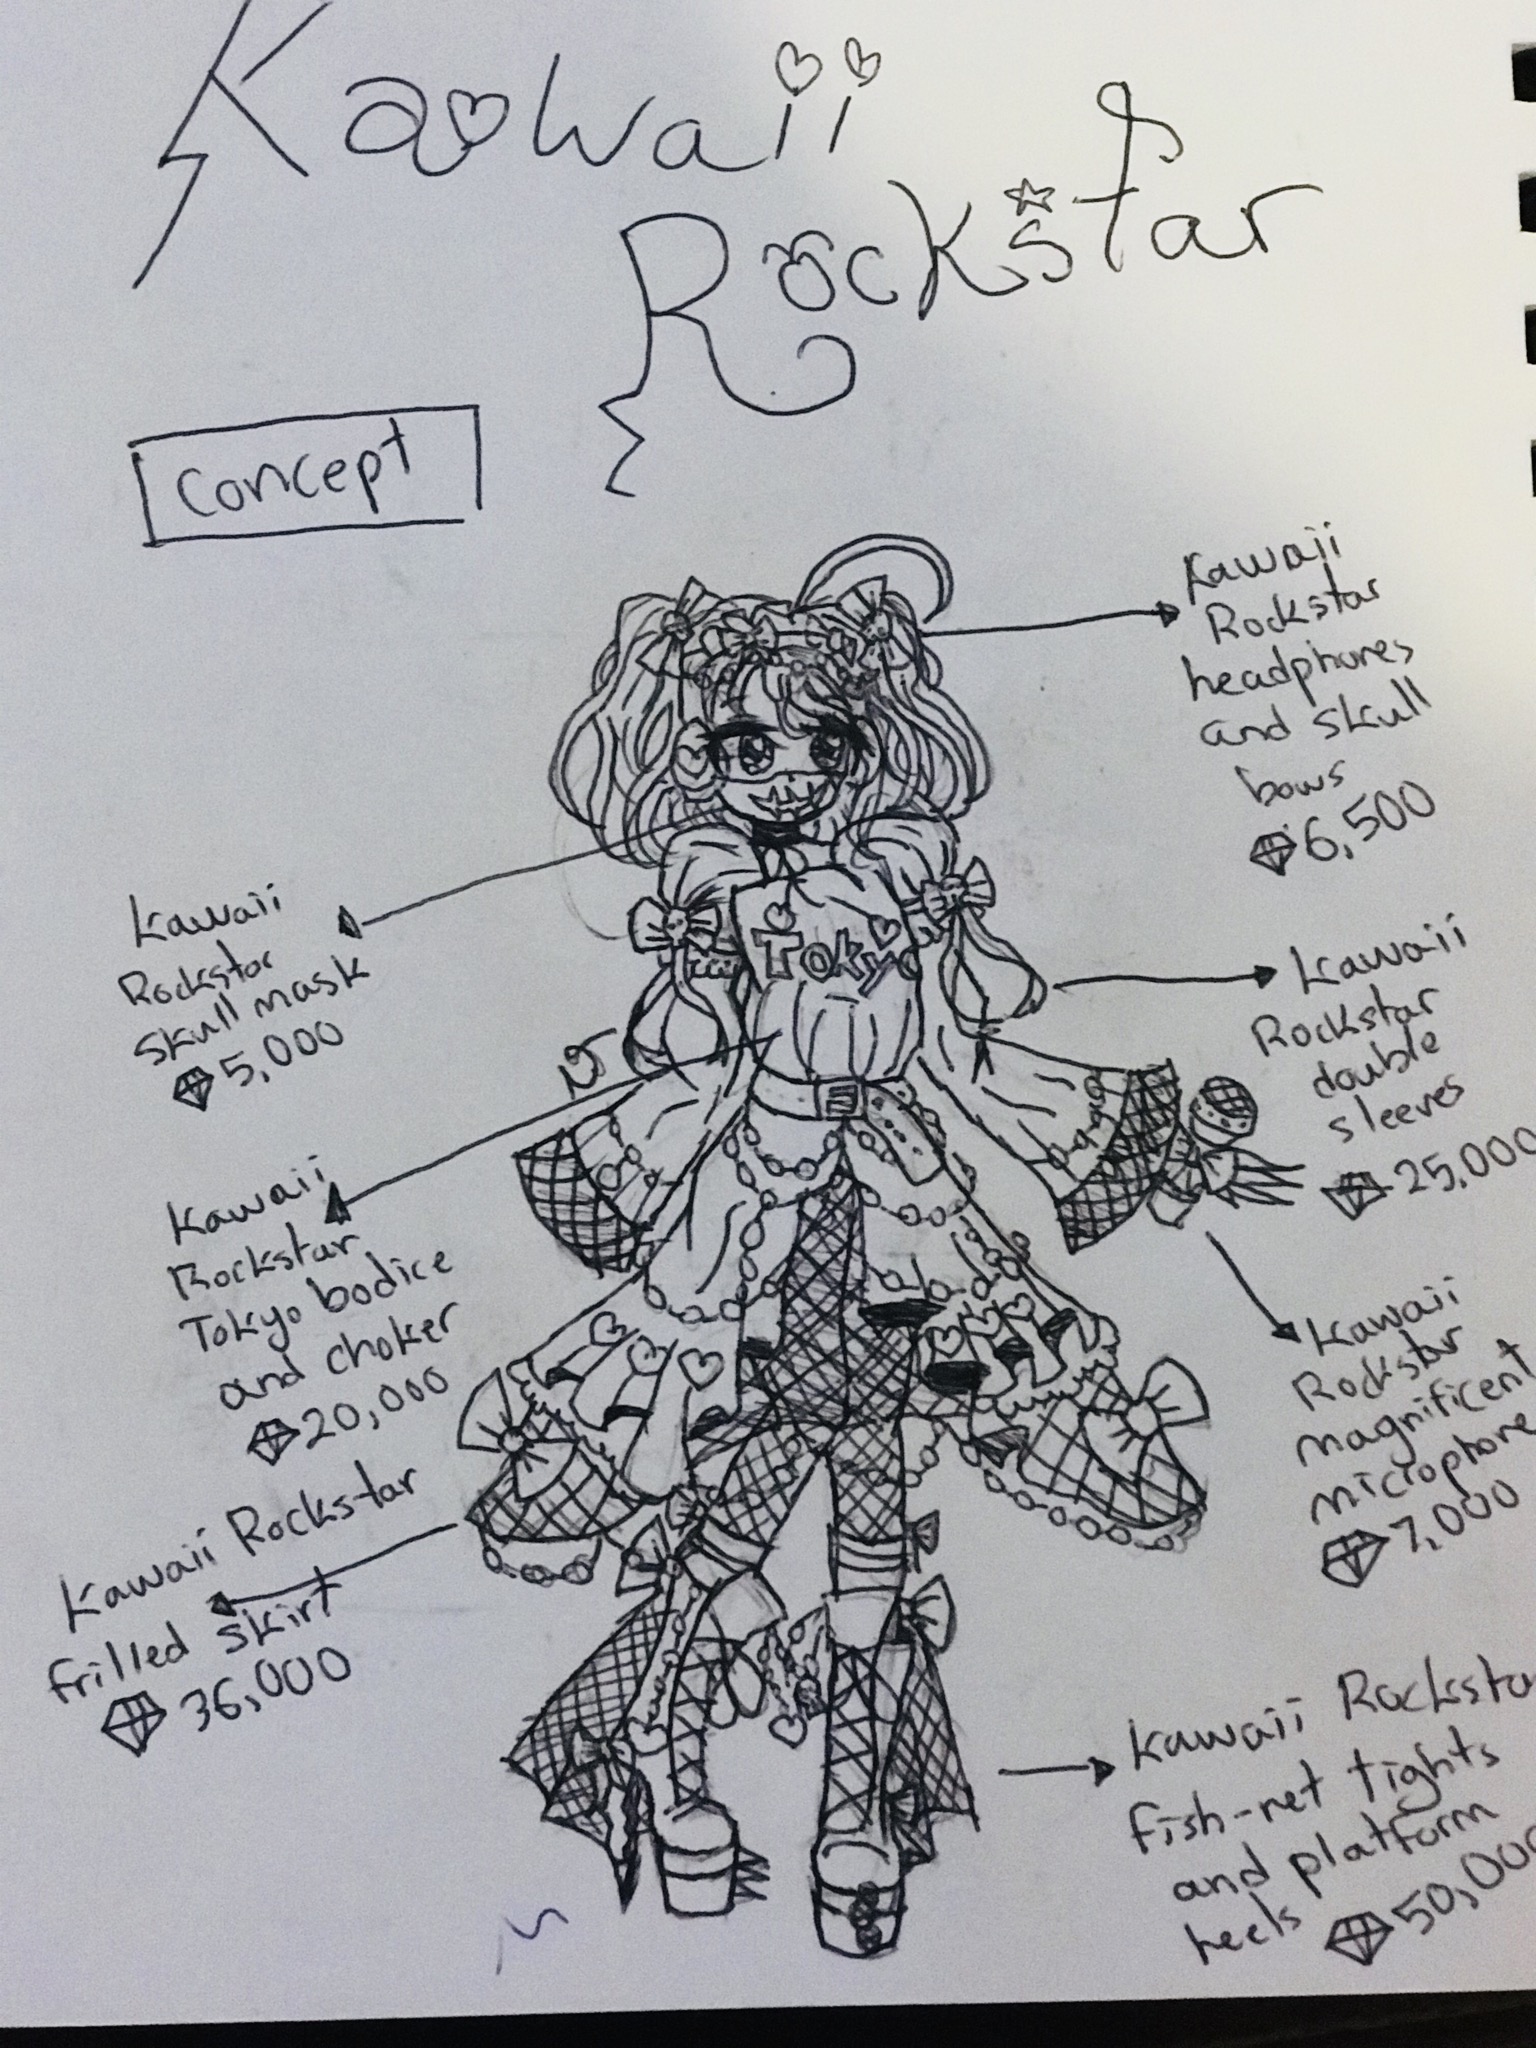 Kawaii
Rockstar
Concept
Kawaii
Rockstar
headphones
and skull
bows
6,500
Kawaii
Rockstar
skull mask
5,000
Tokyo
Kawaii
Rockstar
double
sleeves
25,000
Kawaii
Rockstar
Tokyo bodice
and choker
20,000
Kawaii
Rockstar
magnificent
microphone
7,000
Kawaii Rockstar
frilled skirt
36,000
Kawaii Rockstar
fish-net tights
and platform
heels 50,000